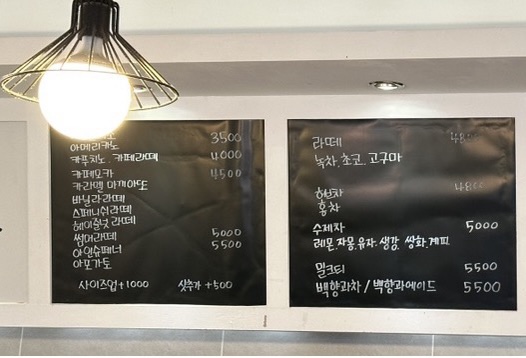 아메리카노 3500
카푸치노. 카페라떼 4000
카페모카 4500
카라멜 마끼아또
바닐라라떼
스페니쉬라떼
헤이즐넛 라떼
썸머라떼 5000
아인슈페너 5500
아포가토
사이즈업+1000 샷추가 +500
라떼
녹차. 초코. 고구마
허브차
홍차
수제차 5000
레몬.자몽.유자.생강. 쌍화.계피
밀크티 5500
백향과차 / 백향과에이드 5500